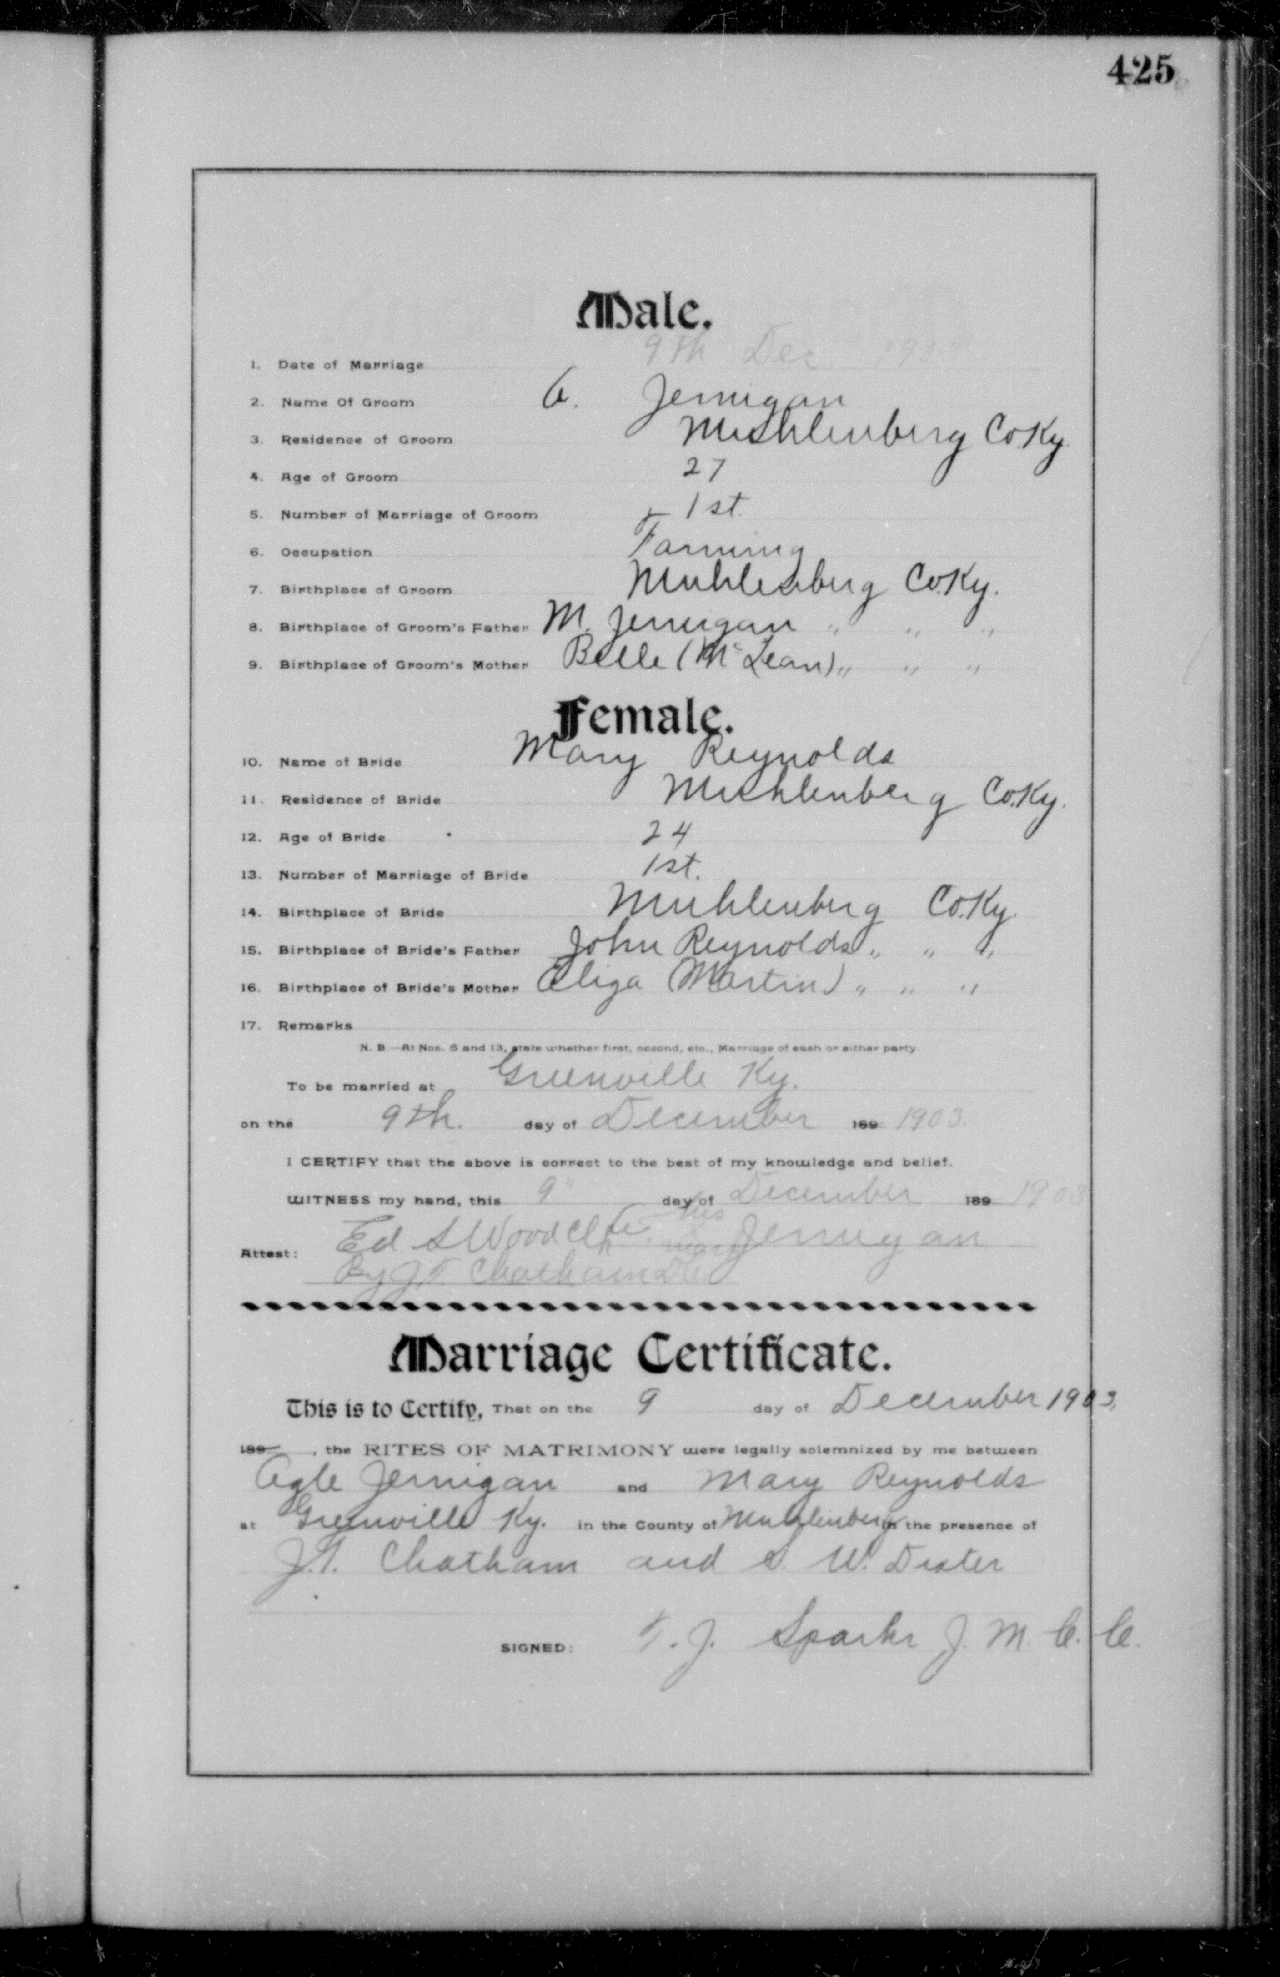 425
Male.
1. Date of Marriage 9th Dec 190
2. Name Of Groom A. Jernigan
3. Residence of Groom Muhlenberg Co. Ky.
4. Age of Groom 27
5. Number of Marriage of Groom 1st.
6. Occupation Farming
7. Birthplace of Groom Muhlenberg Co. Ky.
8. Birthplace of Groom's Father M. Jernigan " " "
9. Birthplace of Groom's Mother Belle (McLean) " " "
Female.
10. Name of Bride Mary Reynolds
11. Residence of Bride Muhlenberg Co. Ky.
12. Age of Bride 24
13. Number of Marriage of Bride 1st.
14. Birthplace of Bride Muhlenberg Co. Ky.
15. Birthplace of Bride's Father John Reynolds " " "
16. Birthplace of Bride's Mother Eliza (Martin) " " "
17. Remarks
N. B.—At Nos. 5 and 13, state whether first, second, etc., Marriage of each or either party.
To be married at Greenville Ky.
on the 9th. day of December 189 1903.
I CERTIFY that the above is correct to the best of my knowledge and belief.
WITNESS my hand, this 9" day of December 189 1903
his
Attest: Ed S Wood Clk mark Jernigan
By J.T. Chatham DC
Marriage Certificate.
This is to Certify, That on the 9 day of December 1903,
189 , the RITES OF MATRIMONY were legally solemnized by me between
Agle Jernigan and Mary Reynolds
at Greenville Ky. in the County of Muhlenberg in the presence of
J.T. Chatham and S. W. Dexter
SIGNED: T. J. Sparks J. M. C. C.